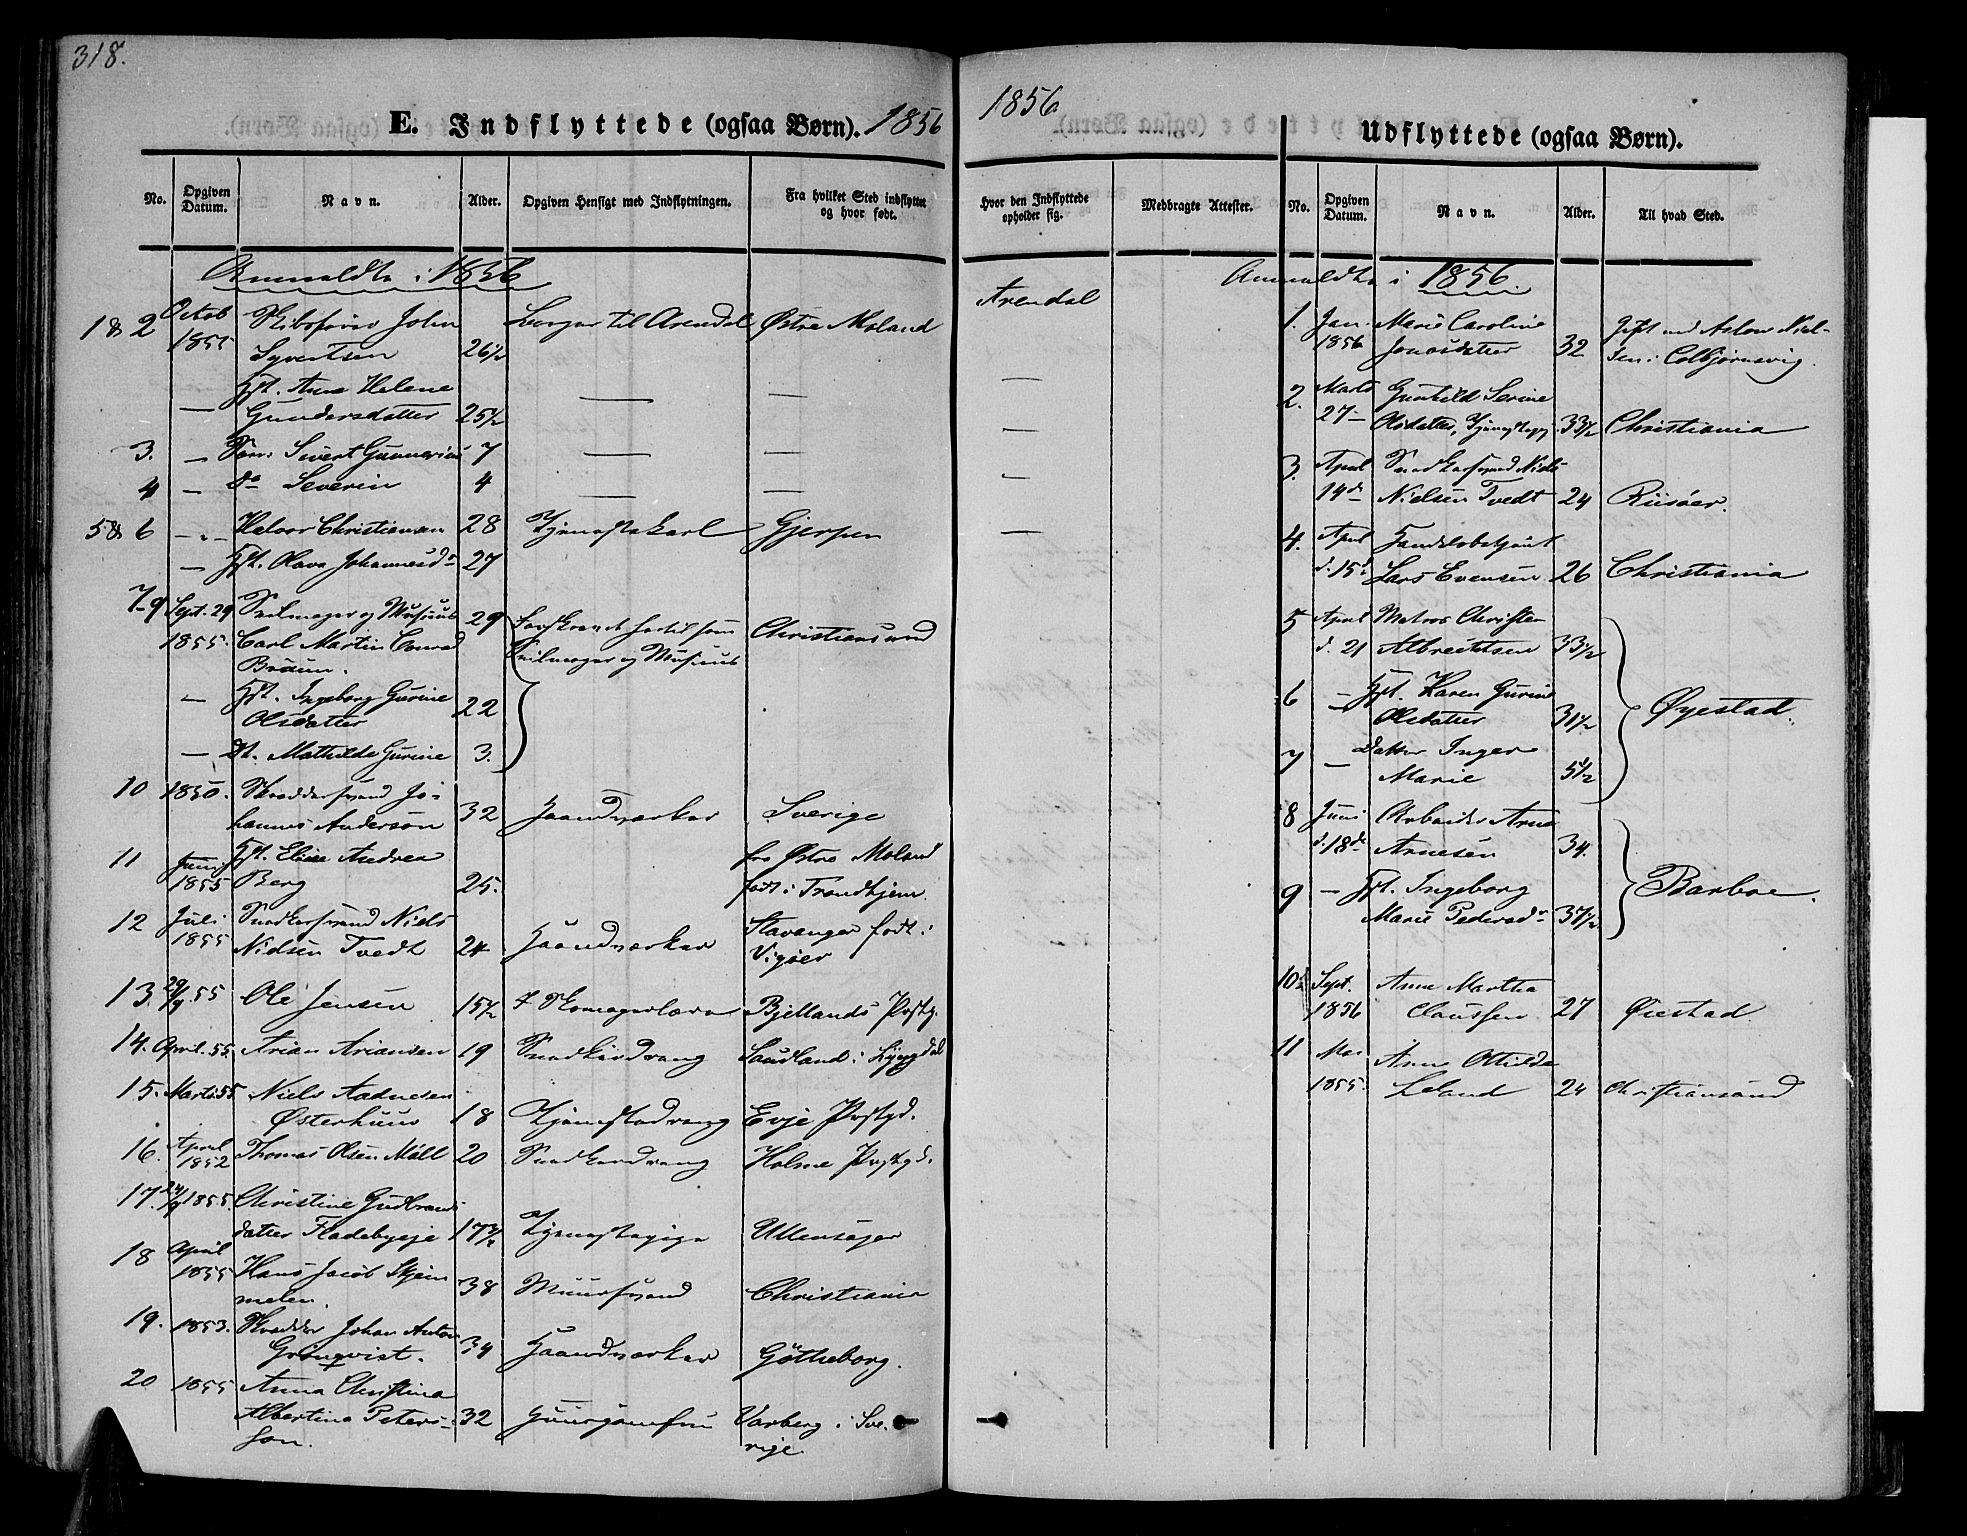 318.
E. Indflyttede (ogsaa Børn). 1856
No.
Opgiven Datum.
Navn.
Alder.
Opgiven Hensigt med Indflytningen.
Fra hvilket Sted indflyttet og hvor født.
Anmeldte i 1856
1 & 2 Octob Skibsfører John Borger til Arendal Østre Moland
1855 Syvertsen 26½
— Hst. Anne Helene — —
Gundersdatter 25½
3. — Søn: Sivert Gunnerius 7 — —
4 — do Severin 4 — —
5 & 6 — " — Halvor Christiansen 28 Tjenestekarl Gjerpen
— Hst. Olava Johannesdr 27
7-9 Sept. 29 Seilmager og Musicus 29 Christiansund
1855. Carl Martin Conrad Seilmager og Musicus
Braun.
— Hst. Ingeborg Gurine
Olsdatter 22
— Dt. Mathilde Gurine 3.
10 1850. Skreddersvend Jo-
hannes Anderson 32 Haandverker Sverige
11 Juni Hst. Elise Andrea fra Østre Moland
1855 Berg 25. født i Trondhjem.
12 Juli Snedkersvend Niels Stavanger født i
1855 Nielsen Tvedt 24 Haandverker
13. 29/9 55 Ole Jensen 15½ I Skomagerlære Bjellands Prstg.
14. April. 55 Arian Ariansen 19 Snedkerdreng i Lyngdal
15. Marts 55 Niels Aadnesen
Østerhuus 18 Tjenestedreng Evje Prstgd.
16. April Thomas Olsen Møll 20 Snedkerdreng Holme Prstgd.
1852
17. 24/9 1855. Christine Gudbrands
datter Fladebyeje 17½ Tjenestepige Ullensager
18 April
1855 Hans Jacob Skjem
melen. 38 Muursvend Christiania
19. 1853. Skredder Johan Anton
Grönqvist. 34 Haandverker Götheborg.
20 1855 Anna Christina
Albertina Peters- 32 Huusjomfru Varberg i Sve-
son. rige.
1856
Hvor den Indflyttede opholder sig.
Medbragte Attester.
Arendal
—
—
—
—
Udflyttede (ogsaa Børn).
No.
Opgiven Datum.
Navn.
Alder.
Til hvad Sted.
Anmeldte i 1856.
1. Jan. Marie Caroline Gift med Aslov Niel-
1856 Jonasdatter 32 sen i Colbjørnsvig.
2. Marts Gunhild Serine
27 — Olsdatter, Tjenestepg. 33½ Christiania
3. April Snedkersvend Niels
14de Nielsen Tvedt 24 Riisøer.
4. April Handelsbetjent
d. 15d Lars Evensen 26 Christiania
5 April Matros Christen
d. 21 Albrechtsen 33½
6 — Hst. Karen Gurine Øyestad.
Olsdatter 31½
7 — Datter Inger
Marie 5½
8 Juni Arbeider Arne
d. 18de Arnesen 34.
9 — Hst. Ingeborg Barboe.
Marie Pedersdr 37½
10 Sept. Anne Martha
1856 Claussen 27 Øiestad
11 Mai Anne Ottilde
1855. Leland 24 Christiansand